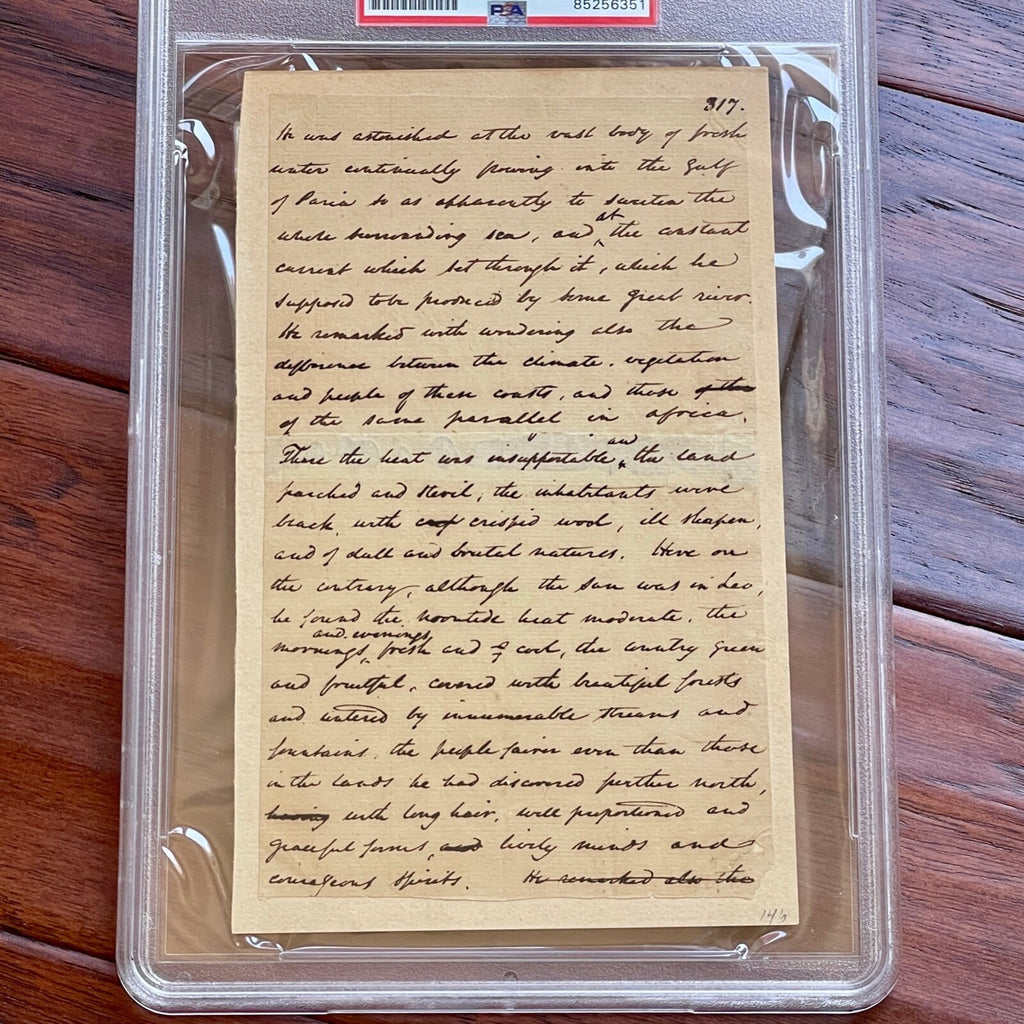 PSA
85256351
317.
He was astonished at the vast body of fresh
water continually flowing into the Gulf
of Paria so as apparently to sweeten the
whole surrounding sea, and at the constant
current which set through it, which he
supposed to be produced by some great river.
He remarked with wondering also the
difference between the climate, vegetation
and people of these coasts, and those of the
of the same parallel in africa.
There the heat was insupportable and the land
parched and steril, the inhabitants were
black, with crisped wool, ill shapen,
and of dull and brutal natures. Here on
the contrary, although the sun was in Leo,
he found the noontide heat moderate, the
mornings and evenings fresh and cool, the country green
and fruitful, covered with beautiful forests
and watered by innumerable streams and
fountains, the people fairer even than those
in the lands he had discovered further north,
having with long hair, well proportioned and
graceful forms, and lively minds and
courageous spirits. He remarked also the
146